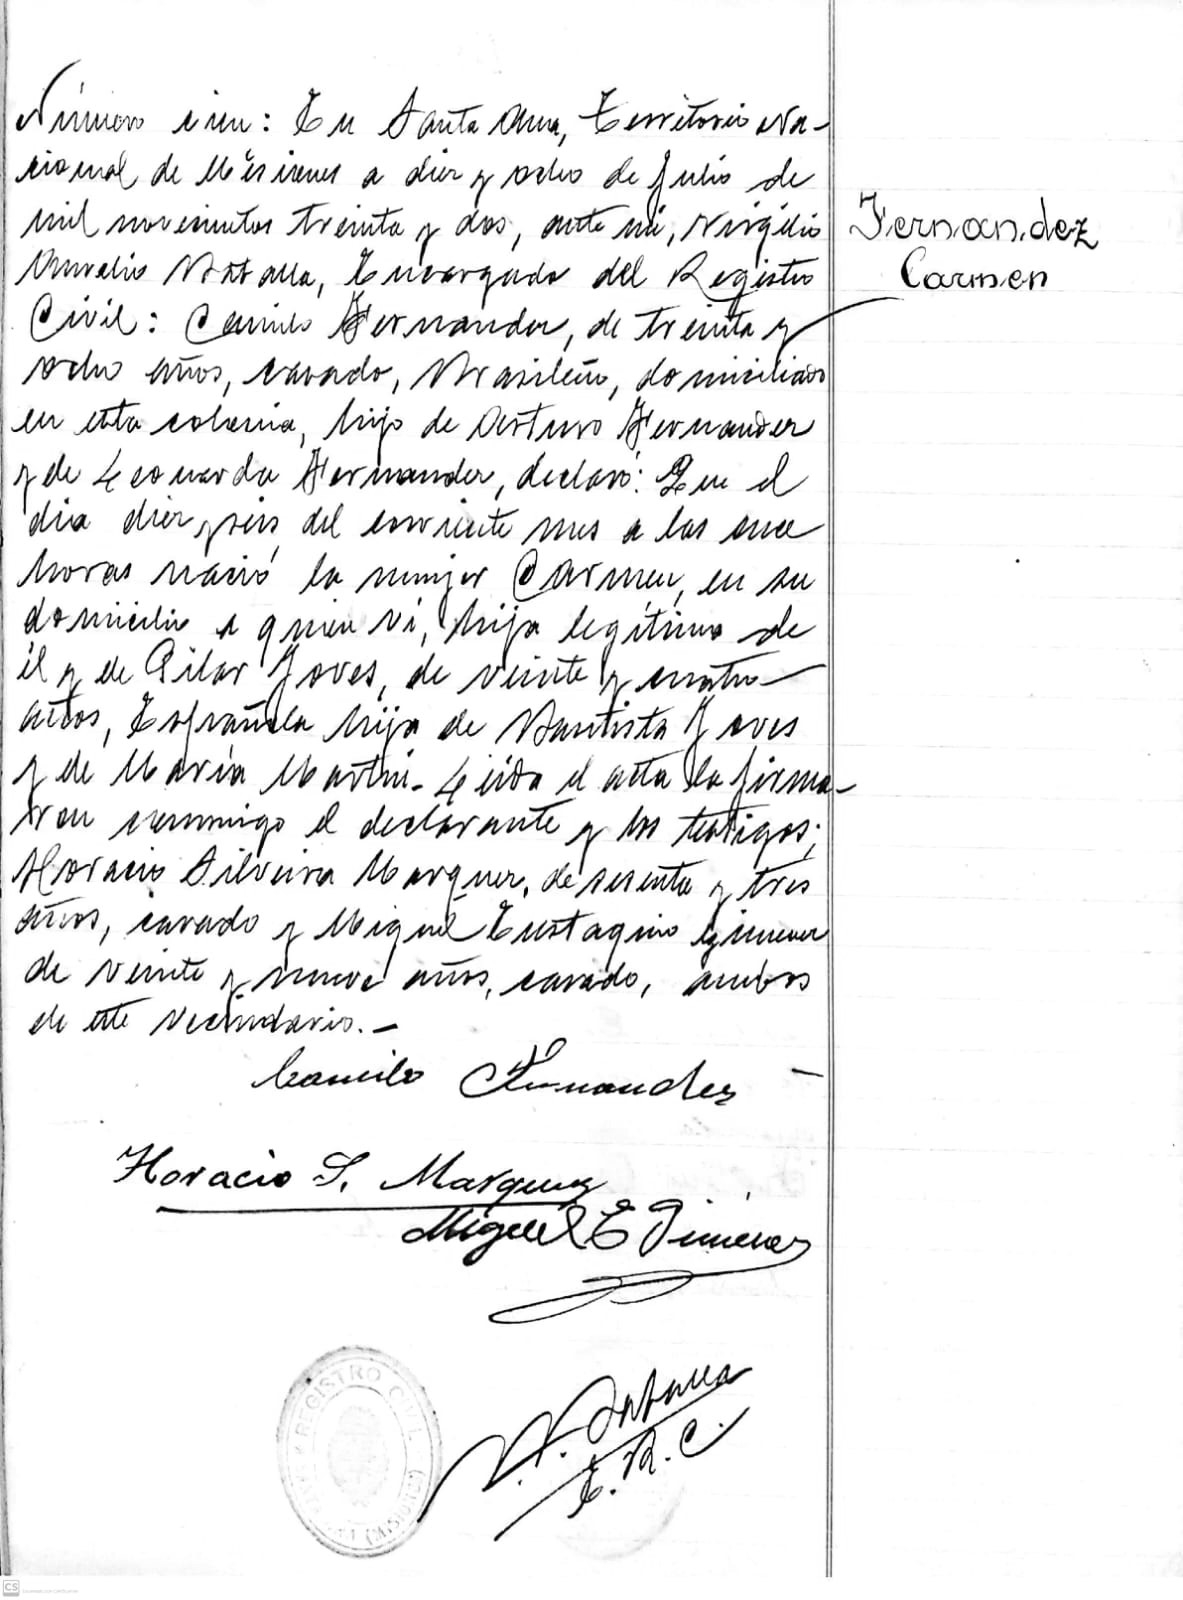 Número cien: En Santa Ana, Territorio Na-
cional de Misiones a diez y ocho de Julio de
mil novecientos treinta y dos, ante mí, Virgilio
Aurelio Batalla, Encargado del Registro
Civil: Camilo Fernandez, de treinta y
ocho años, casado, Brasileño, domiciliado
en esta colonia, hijo de Arturo Fernandez
y de Leonarda Fernandez, declaró: Que el
día diez y seis del corriente mes a las once
horas nació la mujer Carmen, en su
domicilio a quien ví, hija legítima de
él y de Pilar Joves, de veinte y cuatro
años, Española hija de Bautista Joves
y de María Martin. Leida el acta la firma-
ron conmigo el declarante y los testigos;
Horacio Silveira Marquez, de sesenta y tres
años, casado y Miguel Eustaquio Gimenez
de veinte y nueve años, casado, ambos
de este vecindario.-
Fernandez
Carmen
Camilo Fernandez
Horacio S. Marquez
Miguel E Gimenez
V. A. Batalla
E. R. C.
REGISTRO CIVIL
(MISIONES)
CS